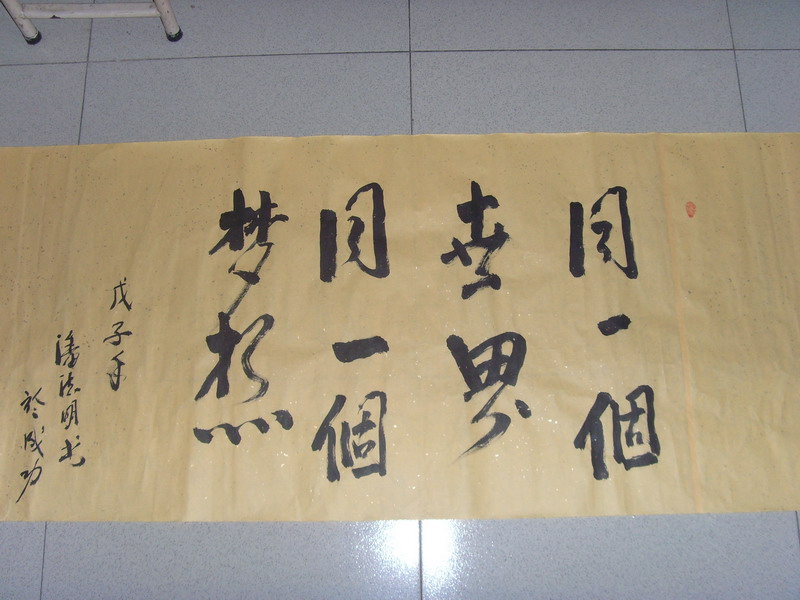 同一個
世界
同一個
梦想
戊子年
潘德明书
於成功